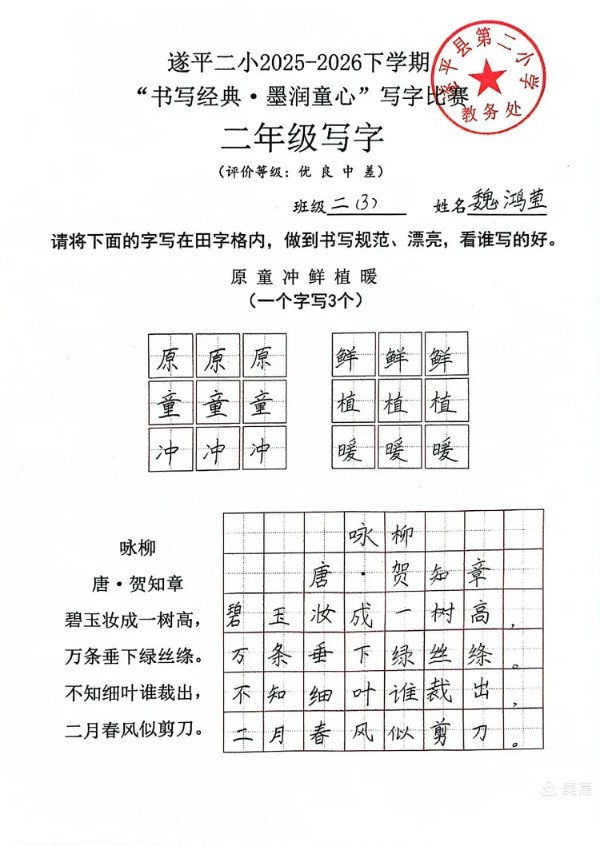 遂平二小2025-2026下学期
“书写经典·墨润童心”写字比赛
遂平县第二小学
教务处
二年级写字
（评价等级：优 良 中 差）
班级 二(3) 姓名 魏鸿莹
请将下面的字写在田字格内，做到书写规范、漂亮，看谁写的好。
原 童 冲 鲜 植 暖
（一个字写3个）
原 原 原 鲜 鲜 鲜
童 童 童 植 植 植
冲 冲 冲 暖 暖 暖
咏柳
唐·贺知章
碧玉妆成一树高，
万条垂下绿丝绦。
不知细叶谁裁出，
二月春风似剪刀。
咏柳
唐·贺知章
碧玉妆成一树高，
万条垂下绿丝绦。
不知细叶谁裁出，
二月春风似剪刀。
美篇